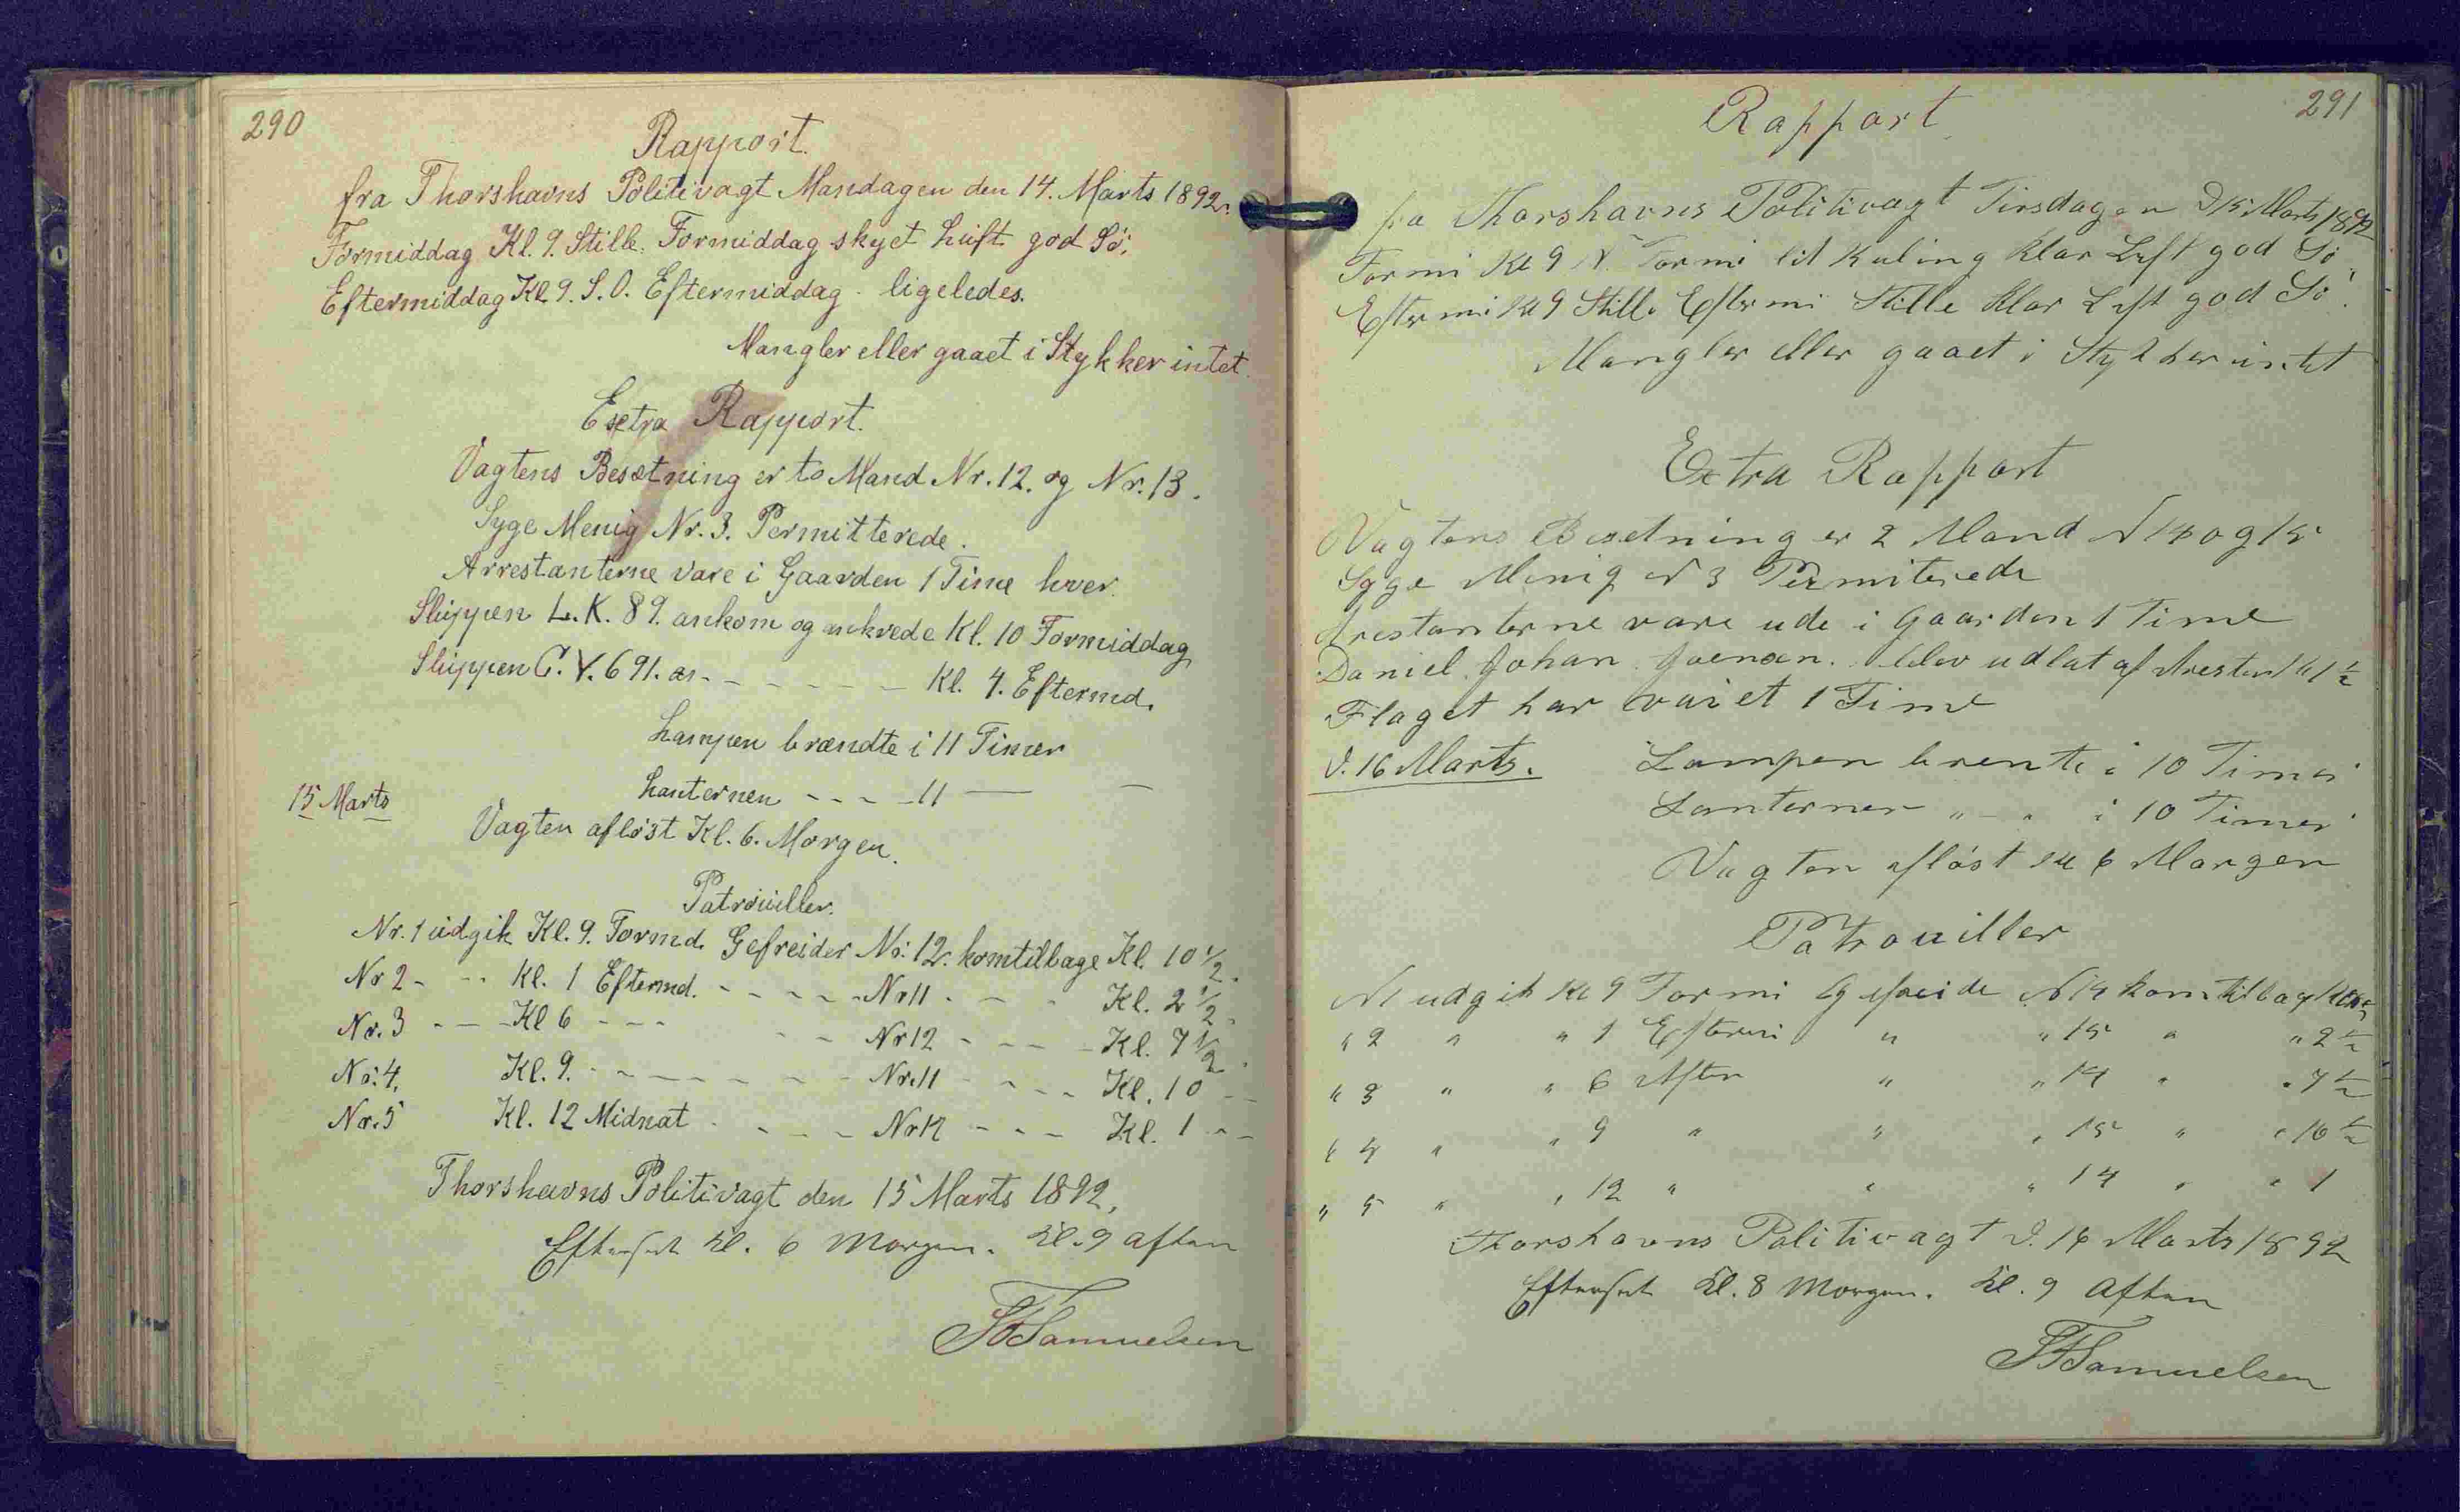 290
Rapport.
fra Thorshavns Politivagt Mandagen den 14. Marts 1892.
Formiddag Kl. 9. Stille. Formiddag skyet Luft god Sö;
Eftermiddag Kl. 9. S.O. Eftermiddag - ligeledes.
Mangler eller gaaet i Stykker intet.
Exstra Rapport.
Vagtens Besætning er to Mand Nr. 12. og Nr. 13.
Syge Menig Nr. 3. Permitterede.
Arrestanterne vare i Gaarden 1 Time hver.
Sluppen L.K. 89. ankom og ankrede Kl. 10 Formiddag
Sluppen 691. - - - - - - Kl. 4. Eftermd.
Lampen brændte i 11 Timer
Lanternen - - - - 11 — —
15 Marts
Vagten afløst Kl. 6. Morgen.
Patrouiller.
Nr. 1 udgik Kl. 9. Formd. Gefreider Nr. 12. kom tilbage Kl. 10 1/2.
Nr 2 - - - Kl. 1 Eftermd. - - - - - Nr 11 - - - Kl. 2 1/2.
Nr. 3 - - - Kl 6 - - - - - Nr 12 - - - - Kl. 7 1/2.
Nr. 4. Kl. 9. - - - - - - - Nr. 11 - - - Kl. 10 - -
Nr. 5 Kl. 12 Midnat - - - - Nr 12 - - - Kl. 1 - -
Thorshavns Politivagt den 15 Marts 1892,
Efterset Kl. 6 Morgen. Kl. 9 Aften
Samuelsen
291
Rapport
fra Thorshavns Politivagt Tirsdagen D 15 Marts 1892
Formi Kl 9 N Formi lit Kuling klar Luft god Sö
Eftermi Kl 9 Stille Eftermi Stille klar Luft god Sö.
Mangler eller gaaet i Stykker intet
Extra Rapport
Vagtens Besetning er 2 Mand N 14 og 15
Syge Menig N 3 Permiterede
Arestanterne vare ude i Gaarden 1 Time
Daniel Johan Joensen. blev udlat af Aresten Kl 1 1/2
Flaget har vaiet 1 Time
D. 16 Marts. Lampen brente i 10 Timer
Lanternen " - " i 10 Timer
Vagten afløst Kl 6 Morgen
Patrouiller
N 1 udgik Kl 9 Formi Gefreide N 14 kom tilbag Kl
" 2 " " 1 Eftermi " " 15 " " 2 1/2
" 3 " " 6 Aften " " 14 " " 7 1/2
" 4 " " 9 " " " 15 " " 10 1/2
" 5 " " 12 " " " 14 " " 1
Thorshavns Politivagt D. 16 Marts 1892
Efterset Kl. 8 Morgen. Kl. 9 Aften
Samuelsen